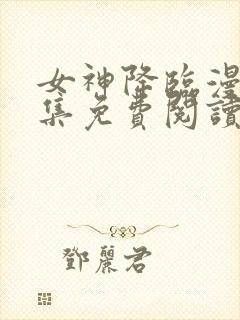 女神降臨漫
集免費閱讀
鄧麗君